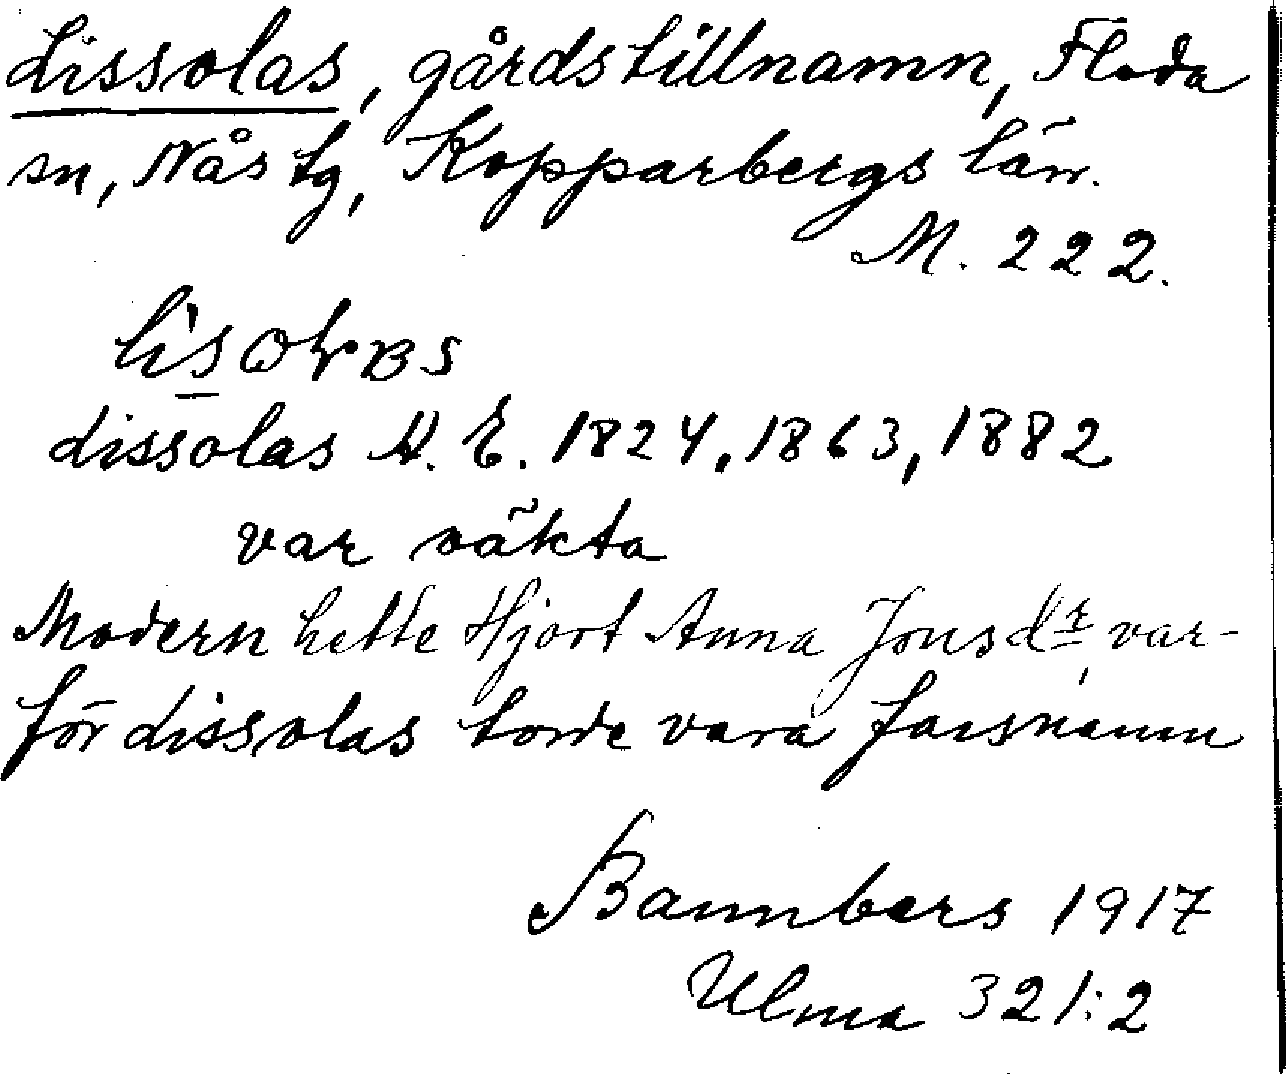 Lissolas, gårdstillnamn, Floda
sn, Nås tg, Kopparbergs län.
M. 222.
Lissolas N. E. 1824, 1863, 1882
var oäkta
Modern hette Hjort Anna Jonsdr, var-
för Lissolas torde vara farsnamn
Bannbers 1917
Ulma 321:2